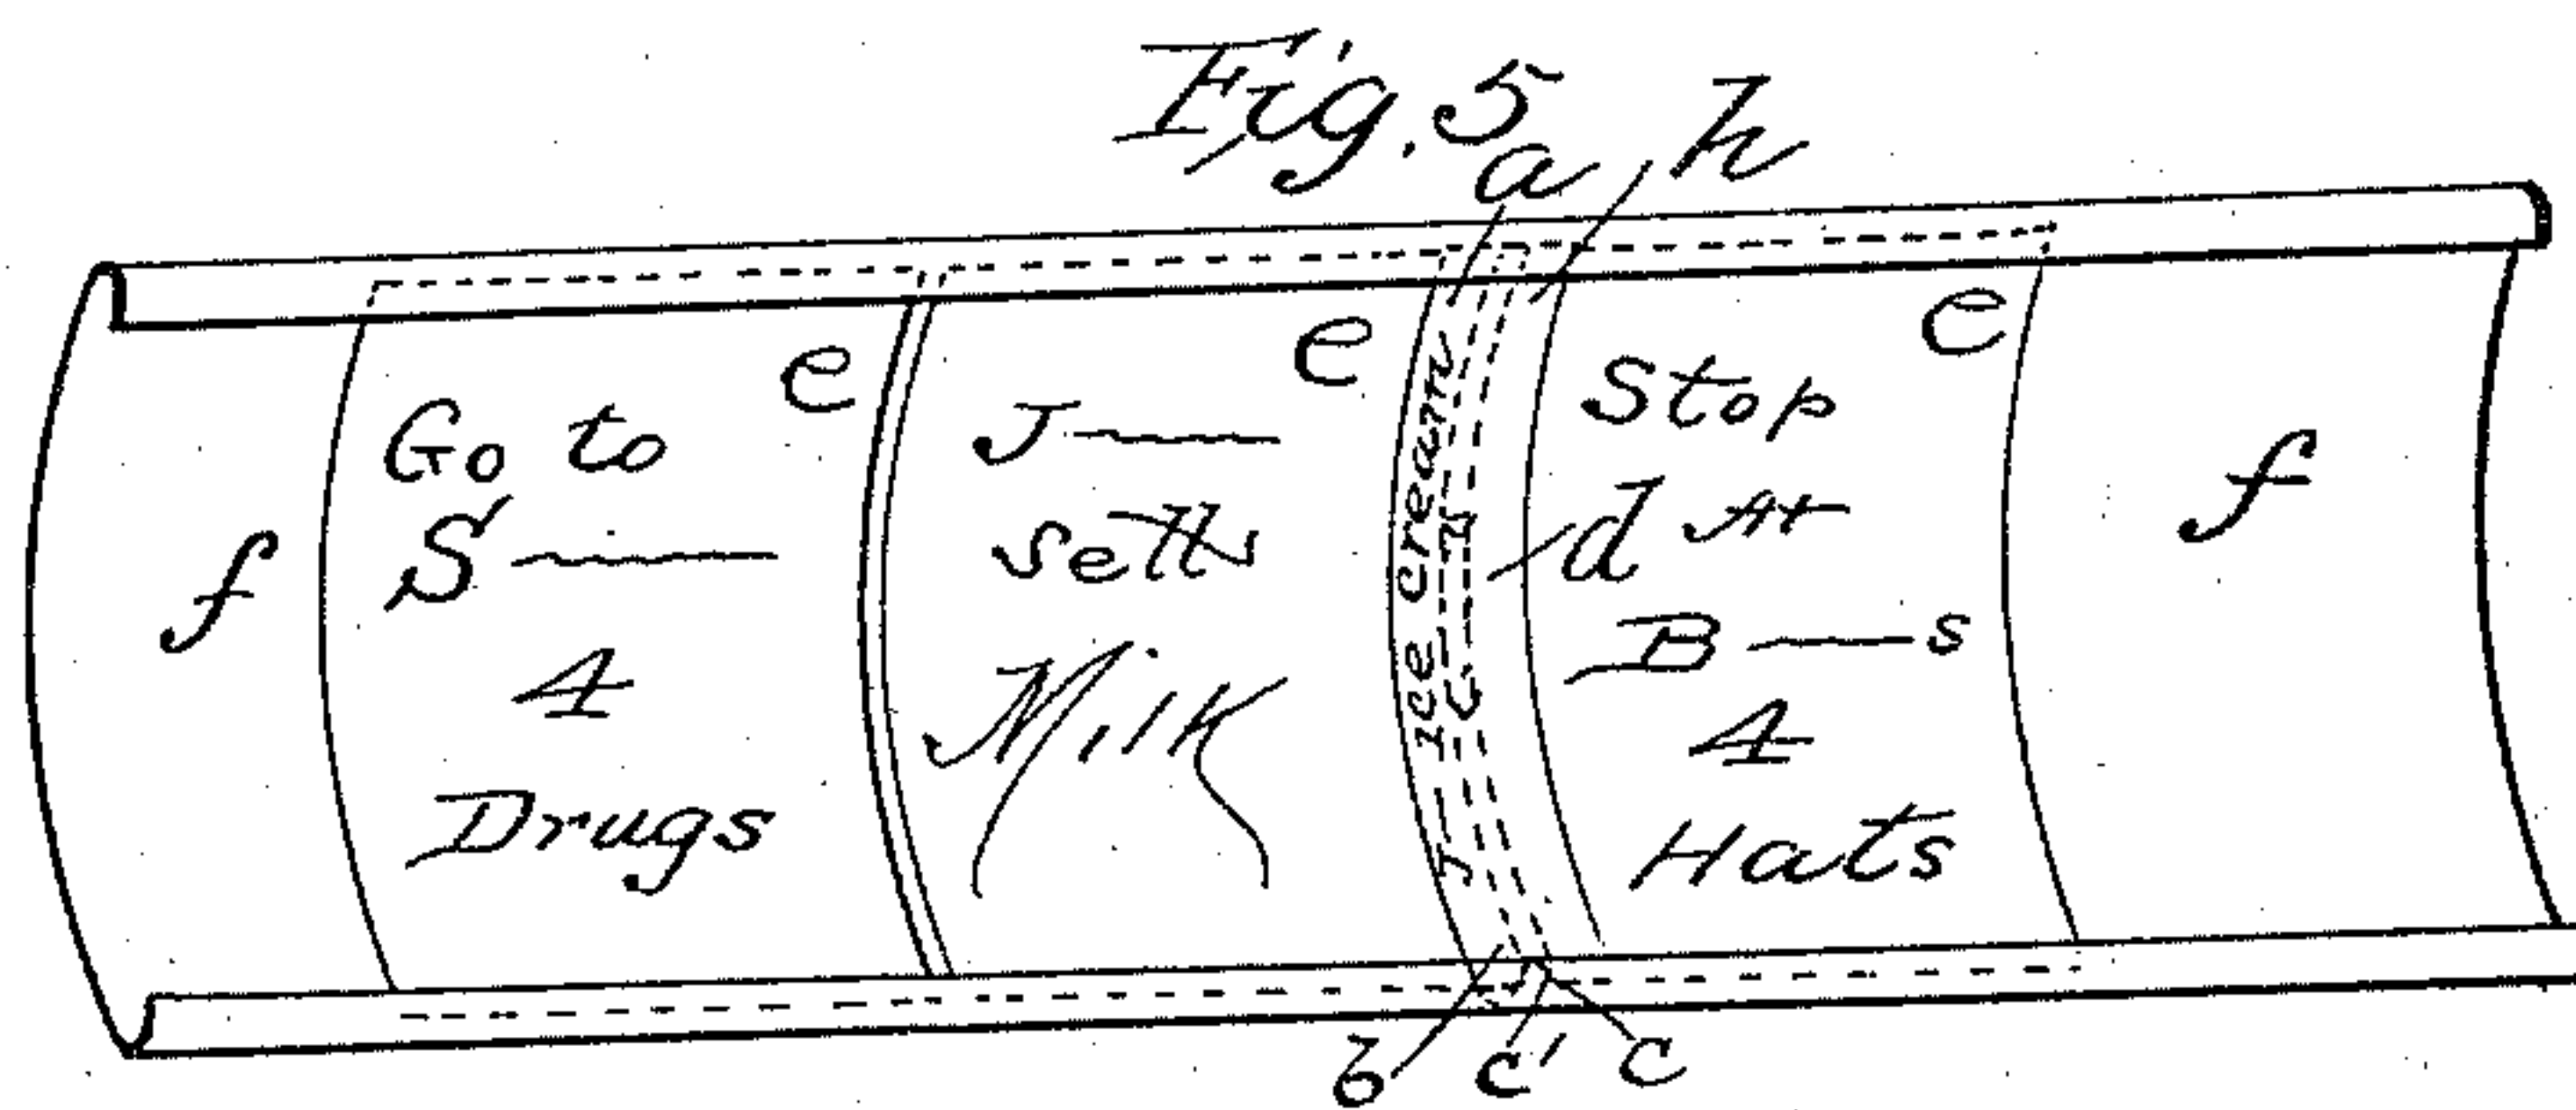 Fig. 5
a h
e e e
f
Go to
S——
4
Drugs
J——
sells
Milk
J— ice cream
d
Stop
At
B——s
4
Hats
f
b c' c